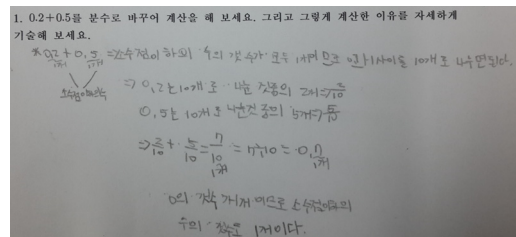 1. 0.2+0.5를 분수로 바꾸어 계산을 해 보세요. 그리고 그렇게 계산한 이유를 자세하게
기술해 보세요.
* 0.2 + 0.5 = 소수점이 하의 수의 갯수가 모두 1개 0과 1사이를 10개로 나누면된다.
1개 1개
⇒ 0.2는 10개로 나눈 것중의 2개⇒ 2/10
0.5는 10개로 나눈것 중의 5개⇒ 5/10
⇒ 2/10 + 5/10 = 7/10 = 7÷10 = 0.7
1개 1개
0의 갯수 1개 이므로 소수점이하의
수의 갯수도 1개이다.